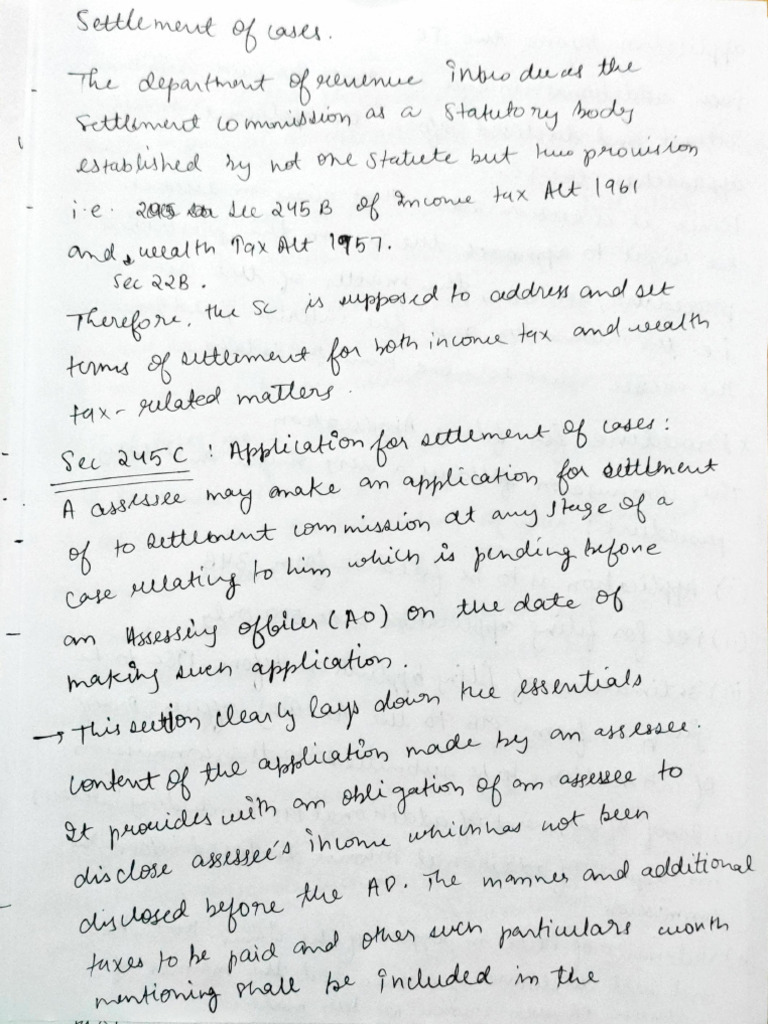 Settlement of cases.
The department of revenue introduces the
Settlement commission as a statutory body
established by not one statute but two provision
i.e. Sec 245B of Income tax Act 1961
and, wealth Tax Act 1957.
Sec 22B.
Therefore, the SC is supposed to address and set
terms of settlement for both income tax and wealth
tax-related matters.
Sec 245C : Application for settlement of cases:
A assessee may make an application for settlement
of to settlement commission at any stage of a
case relating to him which is pending before
an Assessing officer (AO) on the date of
making such application.
→ This section clearly lays down the essentials
content of the application made by an assessee.
It provides with an obligation of an assessee to
disclose assessee's income which has not been
disclosed before the AO. The manner and additional
taxes to be paid and other such particulars worth
mentioning shall be included in the